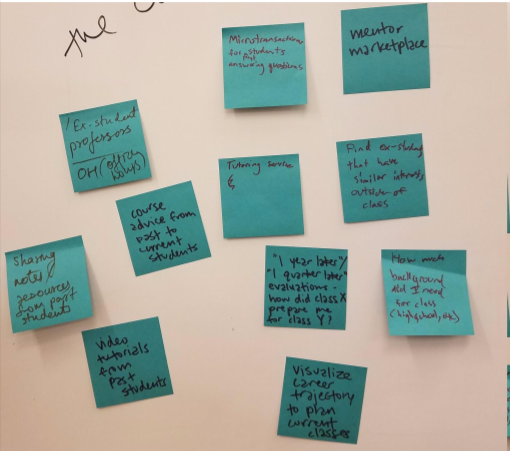 the
Microtransactions
for students
past
answering questions
mentor
marketplace
Ex-student
professors
OH (office
hours)
Tutoring service
&
Find ex-students
that have
similar interests
outside of
class
course
advice from
past to
current
students
sharing
notes/
resources
from past
students
"1 year later"/
"1 quarter later"
evaluations -
how did class X
prepare me
for class Y?
How much
background
did I need
for class
(highschool, etc)
video
tutorials
from
past
students
visualize
career
trajectory
to plan
current
classes